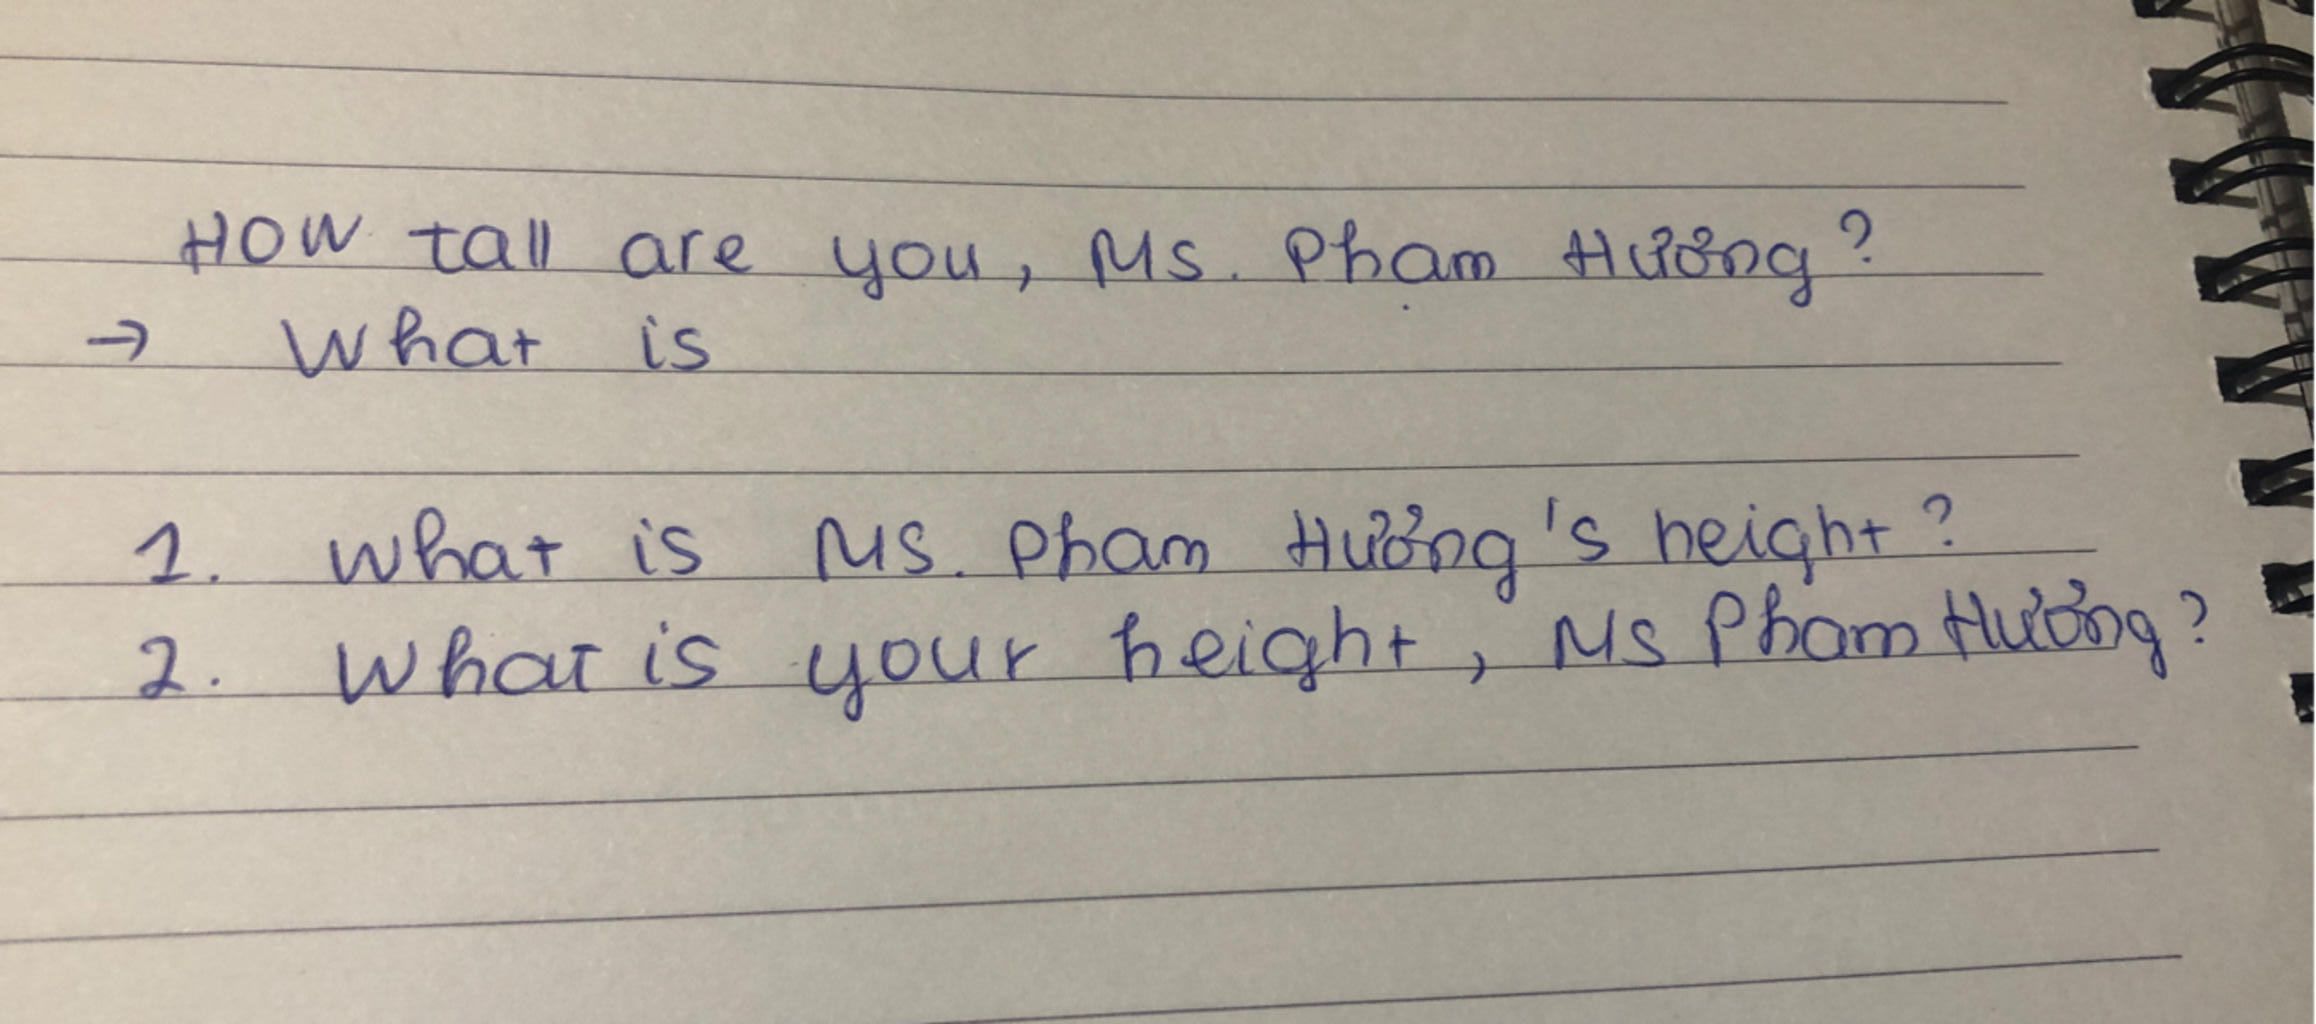 HOW tall are you, Ms. Pham Hưởng?
→ What is
1. What is Ms. Pham Hưởng's height?
2. What is your height, Ms Pham Hưởng?